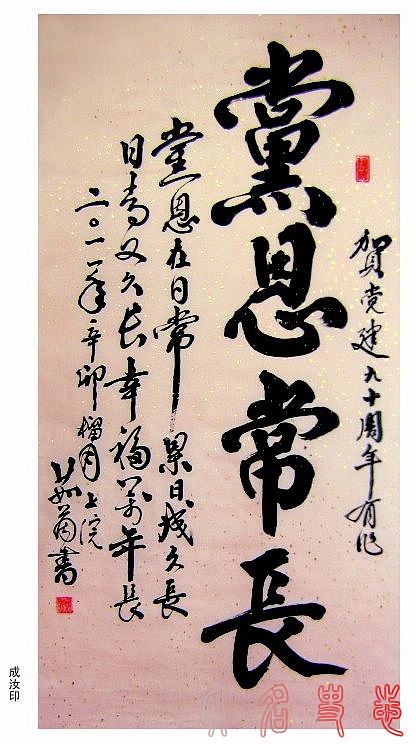 賀党建九十周年有作
黨恩常長
党恩在日常累日成久長
日又久长幸福万年長
二〇一一年辛卯榴月上浣
茹書
成汝印